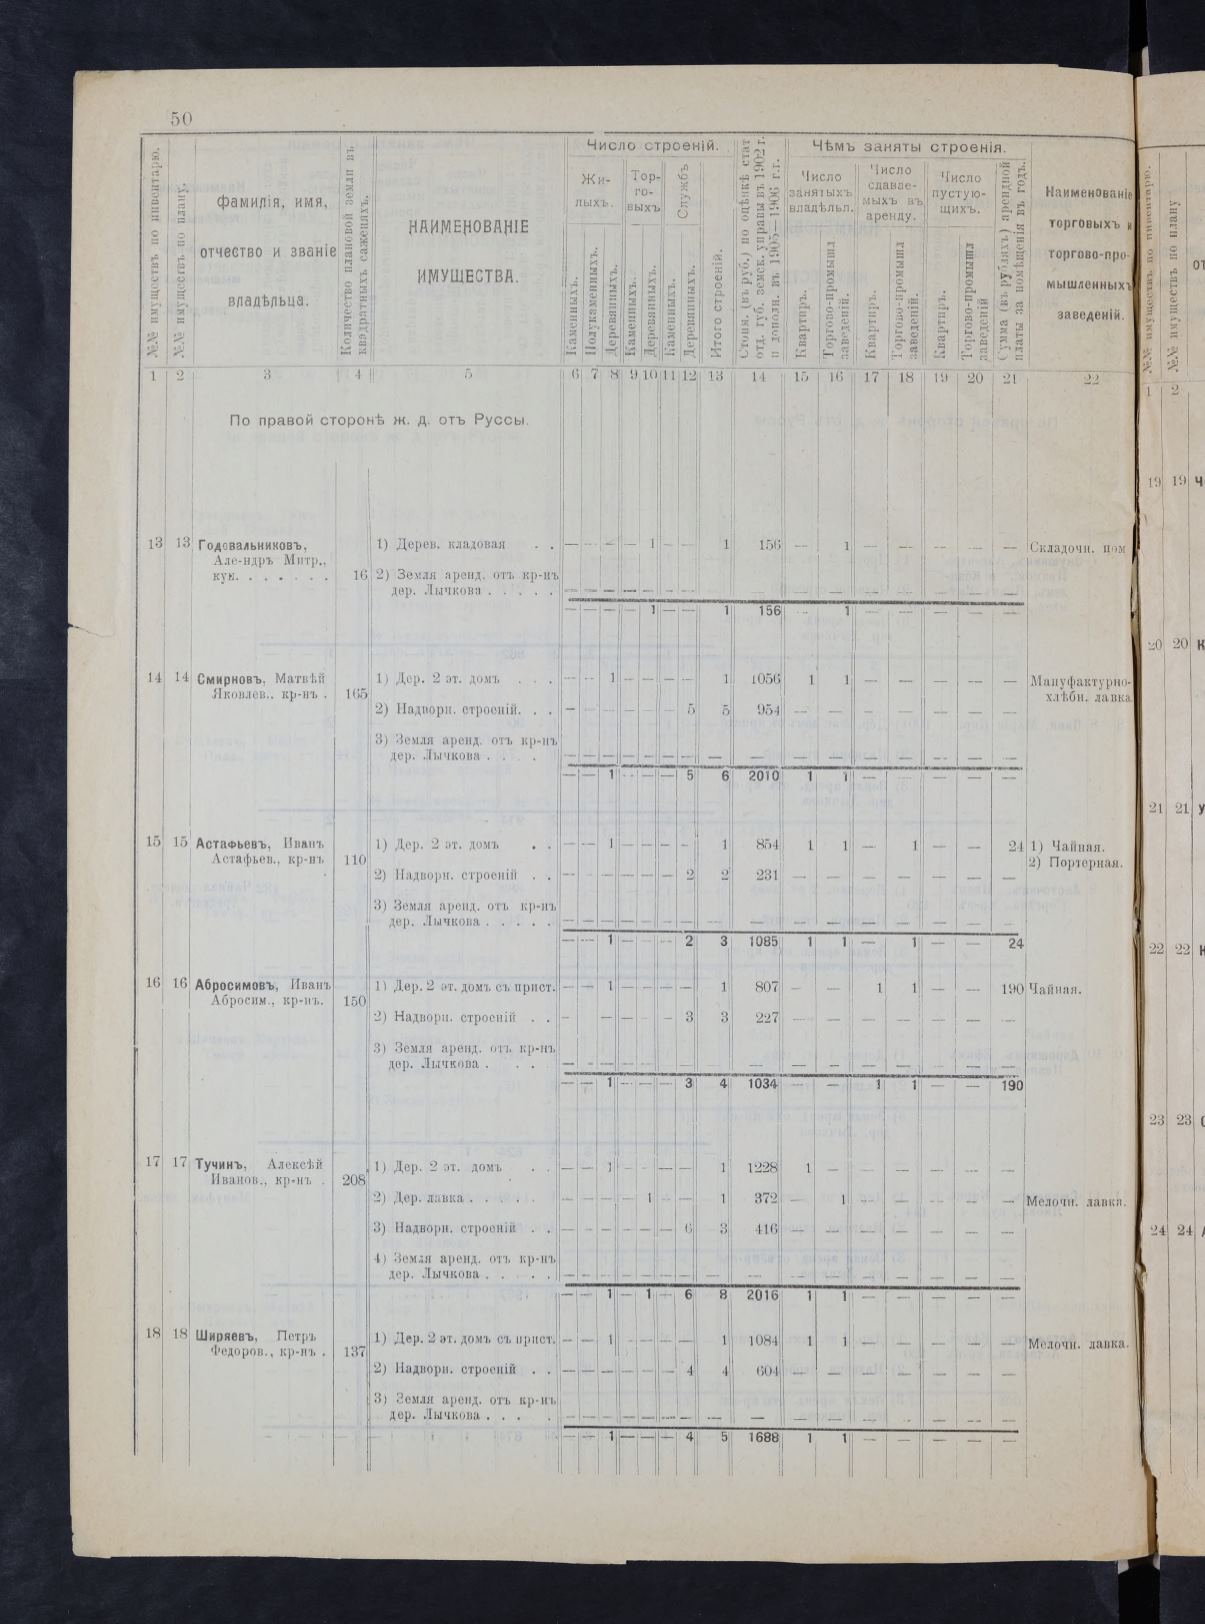 50
№№ имуществъ по инвентарю.
№№ имуществъ по плану.
фамилія, имя,
отчество и званіе
владѣльца.
Количество плановой земли въ
квадратныхъ саженяхъ.
НАИМЕНОВАНІЕ
ИМУЩЕСТВА.
Число строеній.
Жи-
лыхъ.
Тор-
го-
выхъ
Службъ
Каменныхъ.
Полукаменныхъ.
Деревянныхъ.
Каменныхъ.
Деревянныхъ.
Каменныхъ.
Деревянныхъ.
Итого строеній.
Стоим. (въ руб.) по оцѣнкѣ стат
отд. губ. земск. управы въ 1902 г.
и дополн. въ 1905—1906 г.г.
Чѣмъ заняты строенія.
Число
занятыхъ
владѣльл.
Число
сдавае-
мыхъ въ
аренду.
Число
пустую-
щихъ.
Квартиръ.
Торгово-промышл
заведеній.
Квартиръ.
Торгово-промышл
заведеній.
Квартиръ.
Торгово-промышл
заведеній
Сумма (въ рубляхъ) арендной
платы за помѣщенія въ годъ.
Наименованіе
торговыхъ и
торгово-про-
мышленныхъ
заведеній.
1 2 3 4 5 6 7 8 9 10 11 12 13 14 15 16 17 18 19 20 21 22
По правой сторонѣ ж. д. отъ Руссы.
13 13 Годовальниковъ, 1) Дерев. кладовая . . — — — — 1 — — 1 156 — 1 — — — — — Складочн. пом
Але-ндръ Митр.,
куп. . . . . . . 16 2) Земля аренд. отъ кр-нъ
дер. Лычкова . . . . . — — — — — — — — — — — — — — — —
— — — — 1 — — 1 156 — 1 — — — — —
14 14 Смирновъ, Матвѣй 1) Дер. 2 эт. домъ . . . — — 1 — — — — 1 1056 1 1 — — — — — Мануфактурно-
Яковлев., кр-нъ . 165 хлѣбн. лавка
2) Надворн. строеній. . . — — — — — — 5 5 954 — — — — — — —
3) Земля аренд. отъ кр-нъ
дер. Лычкова . . . . — — — — — — — — — — — — — — — —
— — 1 — — — 5 6 2010 1 1 — — — — —
15 15 Астафьевъ, Иванъ 1) Дер. 2 эт. домъ . . — — 1 — — — — 1 854 1 1 — 1 — — 24 1) Чайная.
Астафьев., кр-нъ 110 2) Портерная.
2) Надворн. строеній . . — — — — — — 2 2 231 — — — — — — —
3) Земля аренд. отъ кр-нъ
дер. Лычкова . . . . . — — — — — — — — — — — — — — — —
— — 1 — — — 2 3 1085 1 1 — 1 — — 24
16 16 Абросимовъ, Иванъ 1) Дер. 2 эт. домъ съ прист. — — 1 — — — — 1 807 — — 1 1 — — 190 Чайная.
Абросим., кр-нъ. 150
2) Надворн. строеній . . — — — — — 3 3 227 — — — — — — —
3) Земля аренд. отъ кр-нъ
дер. Лычкова . . . — — — — — — — — — — — — — — — —
— — 1 — — — 3 4 1034 — — 1 1 — — 190
17 17 Тучинъ, Алексѣй 1) Дер. 2 эт. домъ . . — — 1 — — — — 1 1228 1 — — — — — —
Иванов., кр-нъ . 208
2) Дер. лавка . . . . . — — — — 1 — — 1 372 — 1 — — — — — Мелочн. лавка.
3) Надворн. строеній . . — — — — — — 6 3 416 — — — — — — —
4) Земля аренд. отъ кр-нъ
дер. Лычкова . . . . . — — — — — — — — — — — — — — — —
— — 1 — 1 — 6 8 2016 1 1 — — — — —
18 18 Ширяевъ, Петръ 1) Дер. 2 эт. домъ съ прист. — — 1 — — — — 1 1084 1 1 — — — — — Мелочн. лавка.
Федоров., кр-нъ . 137
2) Надворн. строеній . . — — — — — — 4 4 604 — — — — — — —
3) Земля аренд. отъ кр-нъ
дер. Лычкова . . . . — — — — — — — — — — — — — — — —
— — 1 — — — 4 5 1688 1 1 — — — — —
№№ имуществъ по инвентарю.
№№ имуществъ по плану
от
1 2
19 19 Ч
20 20 К
21 21 У
22 22
23 23 С
24 24 А